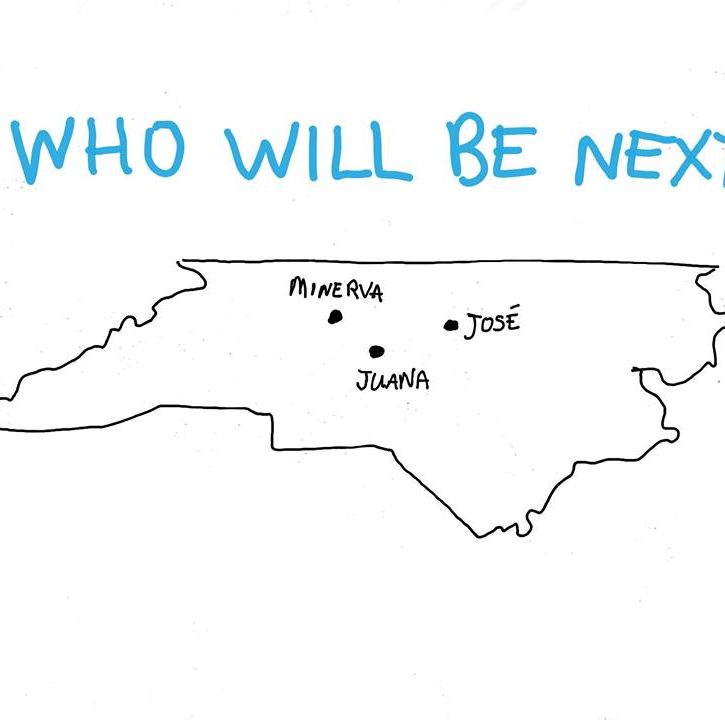 WHO WILL BE NEXT
MINERVA
JOSÉ
JUANA